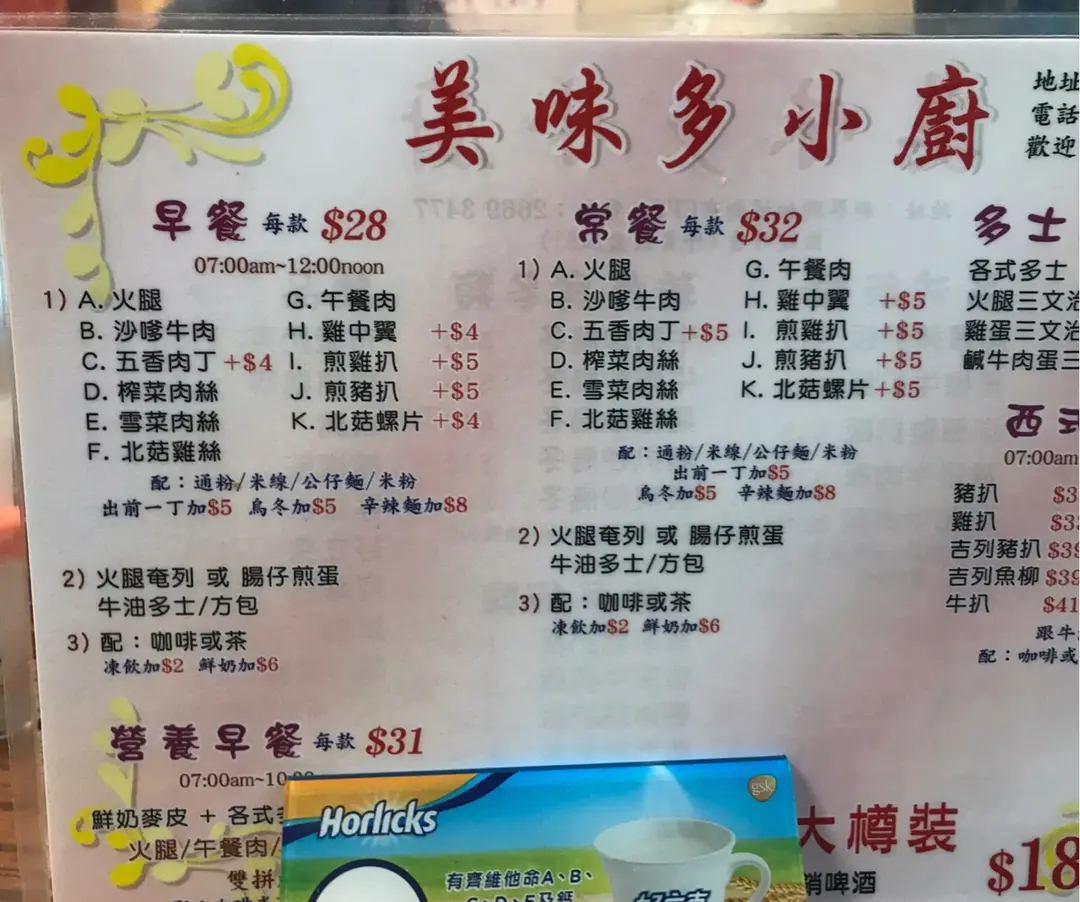 美味多小廚
地址
電話
歡迎
早餐 每款 $28
07:00am~12:00noon
1) A. 火腿 G. 午餐肉
B. 沙嗲牛肉 H. 雞中翼 +$4
C. 五香肉丁 +$4 I. 煎雞扒 +$5
D. 榨菜肉絲 J. 煎豬扒 +$5
E. 雪菜肉絲 K. 北菇螺片 +$4
F. 北菇雞絲
配：通粉/米線/公仔麵/米粉
出前一丁加$5 烏冬加$5 辛辣麵加$8
2) 火腿奄列 或 腸仔煎蛋
牛油多士/方包
3) 配：咖啡或茶
凍飲加$2 鮮奶加$6
營養早餐 每款 $31
07:00am~10
鮮奶麥皮 + 各式
火腿/午餐肉/
雙拼
常餐 每款 $32
1) A. 火腿 G. 午餐肉
B. 沙嗲牛肉 H. 雞中翼 +$5
C. 五香肉丁 +$5 I. 煎雞扒 +$5
D. 榨菜肉絲 J. 煎豬扒 +$5
E. 雪菜肉絲 K. 北菇螺片 +$5
F. 北菇雞絲
配：通粉/米線/公仔麵/米粉
出前一丁加$5
烏冬加$5 辛辣麵加$8
2) 火腿奄列 或 腸仔煎蛋
牛油多士/方包
3) 配：咖啡或茶
凍飲加$2 鮮奶加$6
多士
各式多士
火腿三文治
雞蛋三文治
鹹牛肉蛋三
西式
07:00am
豬扒 $3
雞扒 $3
吉列豬扒 $39
吉列魚柳 $39
牛扒 $41
跟牛
配：咖啡或
Horlicks
gsk
有齊維他命A、B、
C、D、E及鈣
大樽裝
銷啤酒
$18